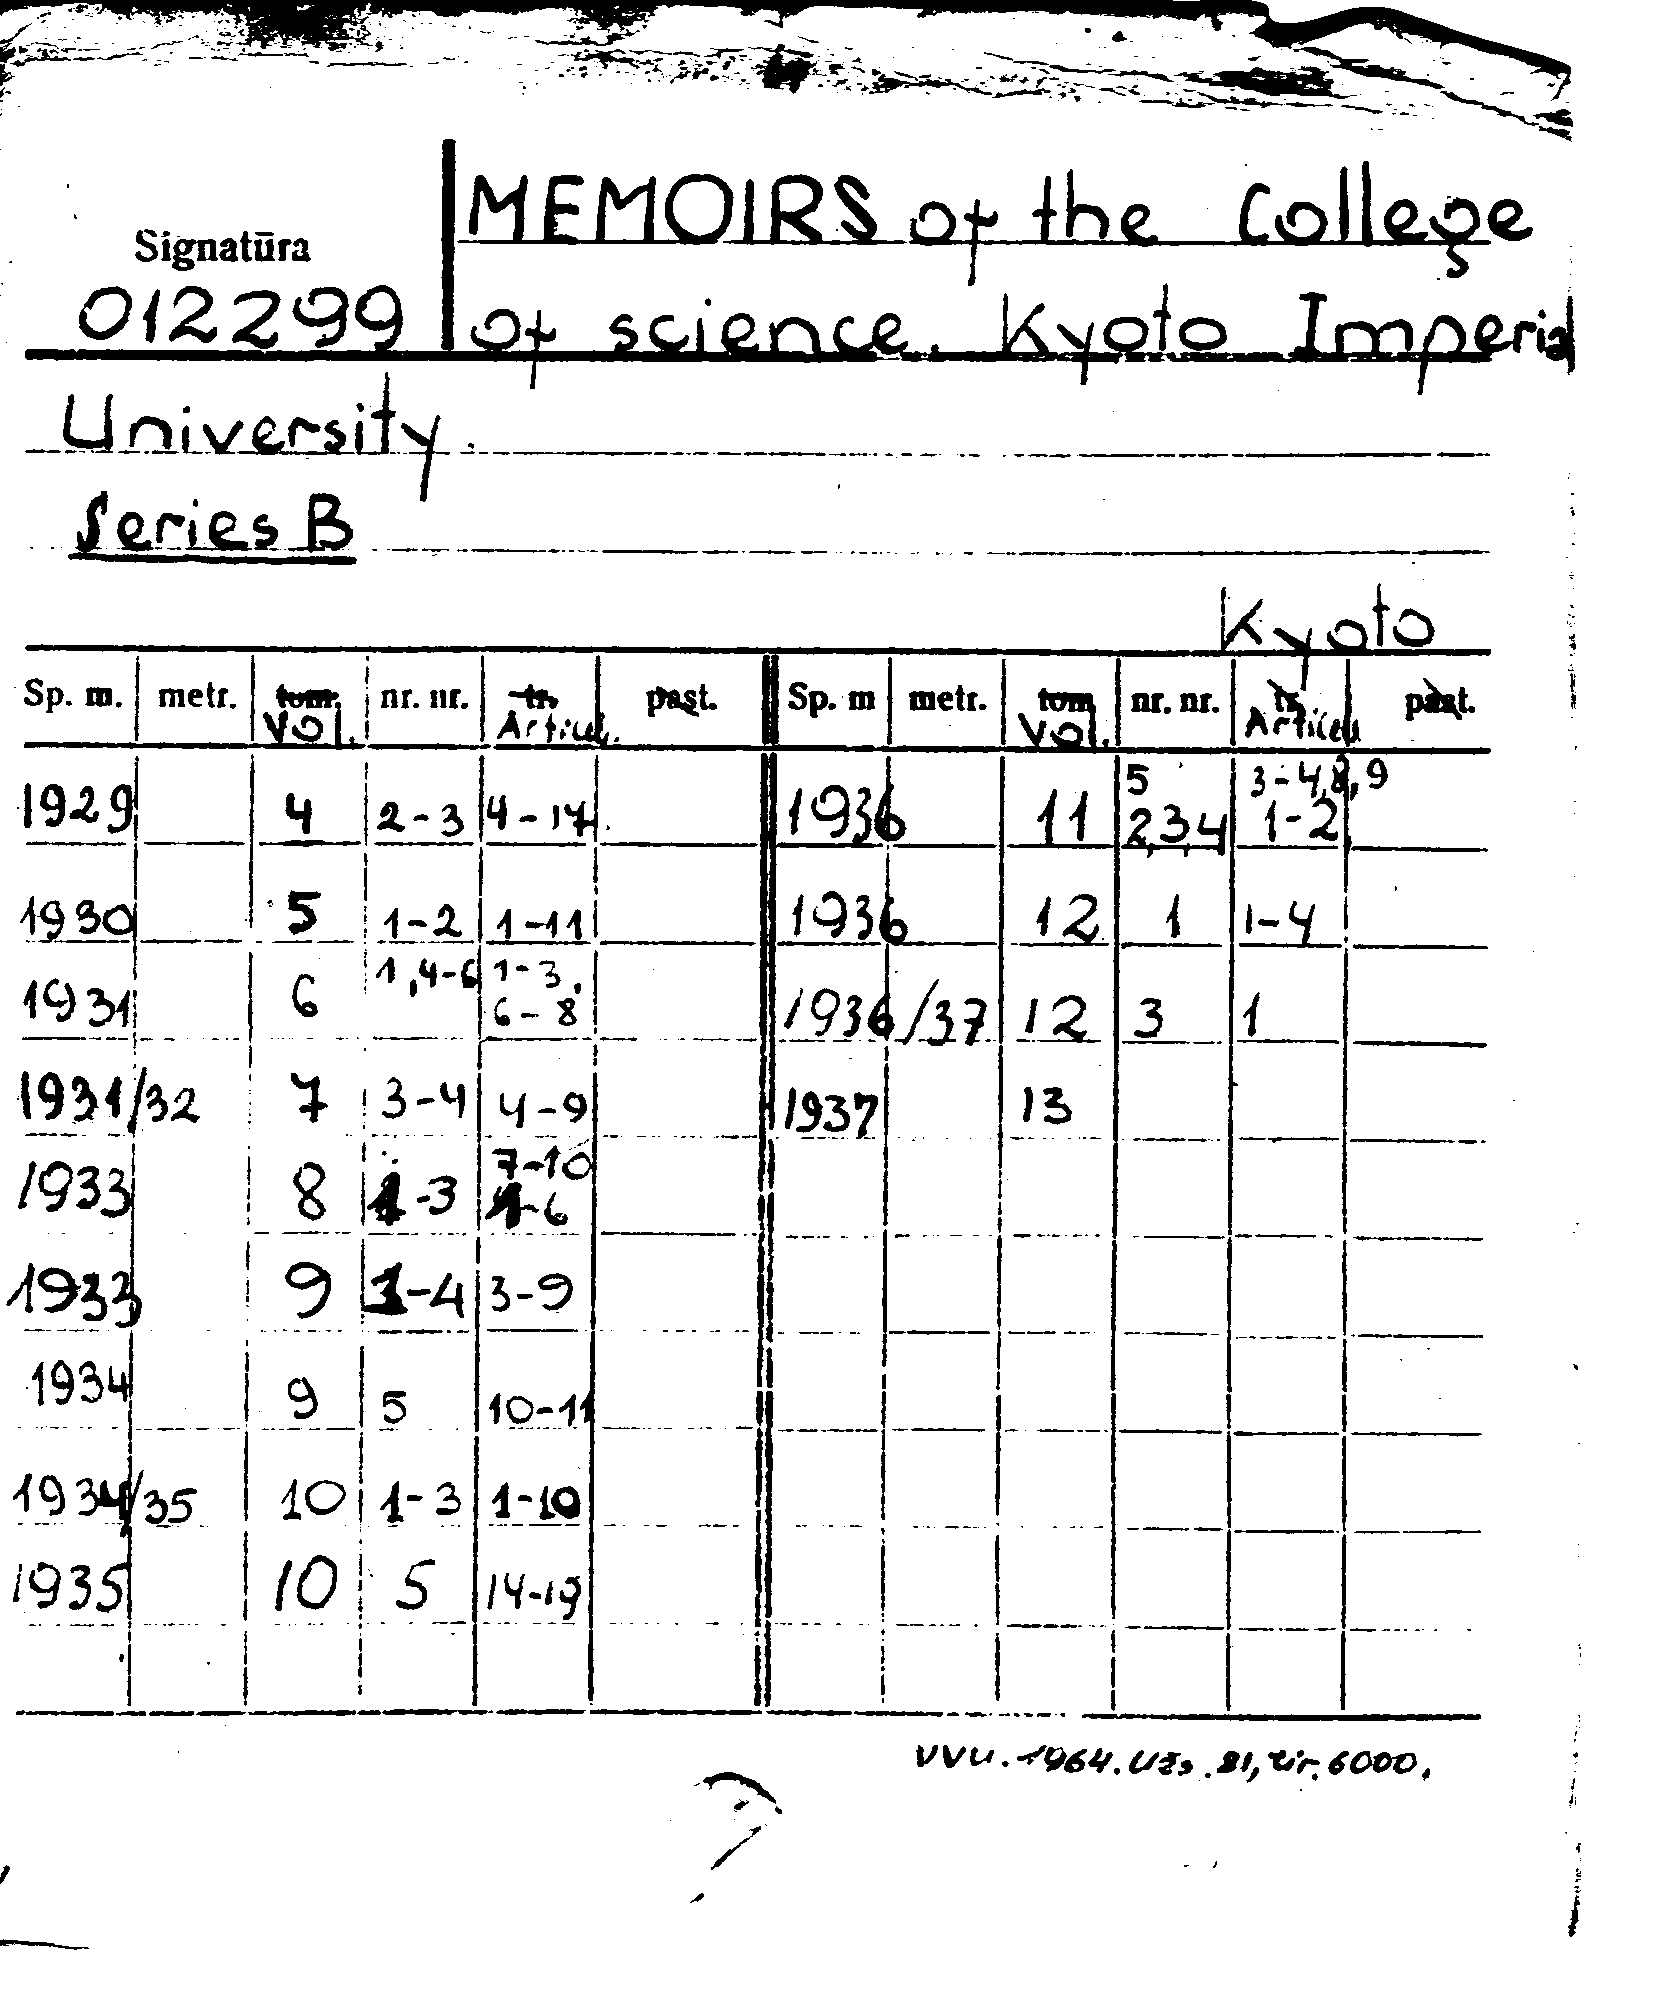 MEMOIRS of the College
Signatūra
012299 of science. Kyoto Imperial
University.
Series B
Kyoto
Sp. m. metr. tom. nr. nr. tr. past. Sp. m metr. tom nr. nr. tr. past.
Vol. Articul. Vol. Articul
5 3-4,8,9
1929 4 2-3 4-17 1936 11 2,3,4 1-2
1930 5 1-2 1-11 1936 12 1 1-4
1931 6 1,4-6 1-3, 1936/37 12 3 1
6-8
1931/32 7 3-4 4-9 1937 13
7-10
1933 8 1-3 1-6
1933 9 1-4 3-9
1934 9 5 10-11
1934/35 10 1-3 1-10
1935 10 5 14-19
VVU. 1964. Užs. 81, tir. 6000.